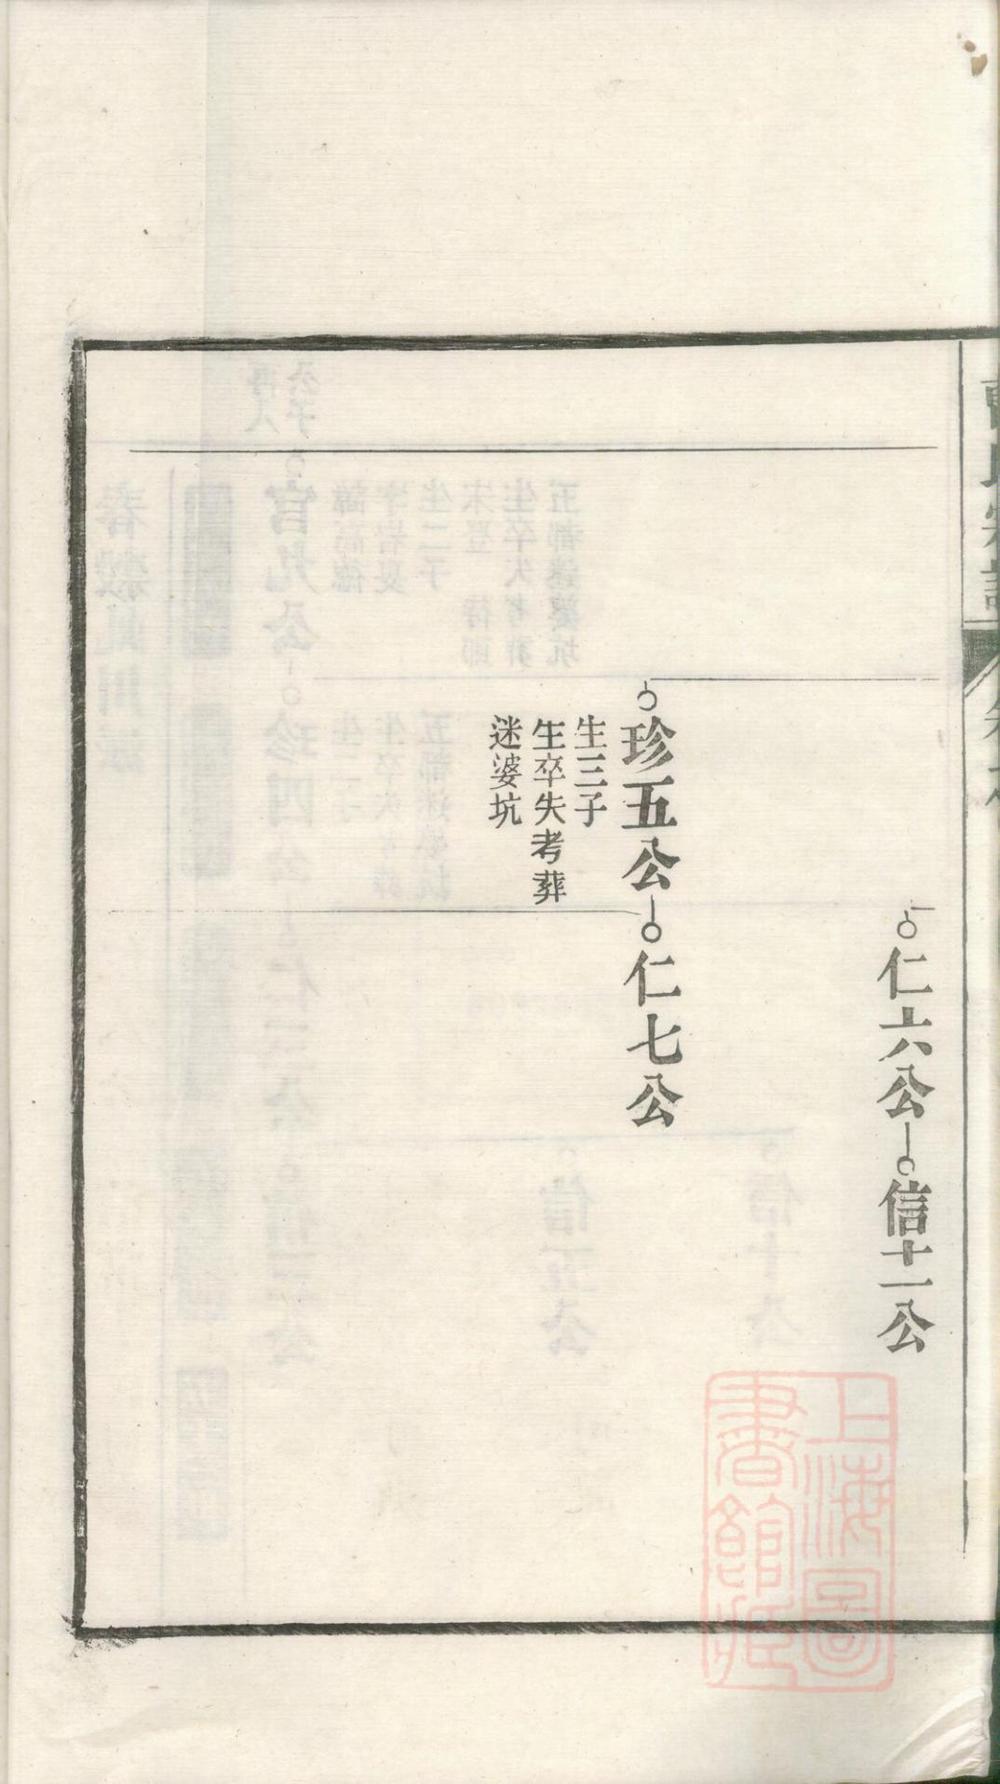 仁六公
信十一公
珍五公
生三子
生卒失考葬
迷婆坑
仁七公
上海圖
書館藏